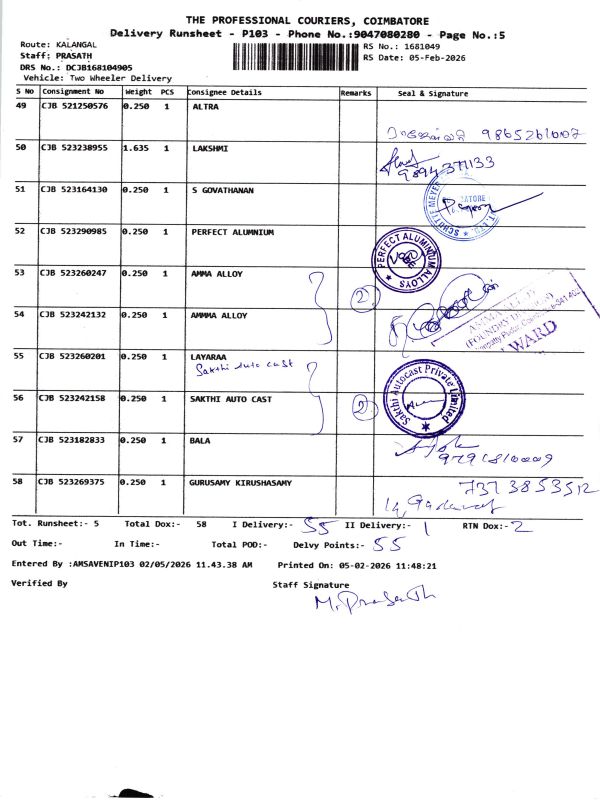 THE PROFESSIONAL COURIERS, COIMBATORE
Delivery Runsheet - P103 - Phone No.:9047080280 - Page No.:5
Route: KALANGAL
RS No.: 1681049
Staff: PRASATH
RS Date: 05-Feb-2026
DRS No.: DCJB168104905
Vehicle: Two Wheeler Delivery
S No Consignment No Weight PCS Consignee Details Remarks Seal & Signature
49 CJB 521250576 0.250 1 ALTRA
9865261007
50 CJB 523238955 1.635 1 LAKSHMI
9894371133
51 CJB 523164130 0.250 1 S GOVATHANAN
52 CJB 523290985 0.250 1 PERFECT ALUMNIUM
PERFECT ALUMINIUM ALLOYS
53 CJB 523260247 0.250 1 AMMA ALLOY
2
54 CJB 523242132 0.250 1 AMMMA ALLOY
INWARD
55 CJB 523260201 0.250 1 LAYARAA
Sakthi Auto cast
56 CJB 523242158 0.250 1 SAKTHI AUTO CAST 2
Sakthi Autocast Private Limited
57 CJB 523182833 0.250 1 BALA
58 CJB 523269375 0.250 1 GURUSAMY KIRUSHASAMY
7373853512
Tot. Runsheet:- 5 Total Dox:- 58 I Delivery:- 55 II Delivery:- 1 RTN Dox:- 2
Out Time:- In Time:- Total POD:- Delvy Points:- 55
Entered By :AMSAVENIP103 02/05/2026 11.43.38 AM Printed On: 05-02-2026 11:48:21
Verified By Staff Signature
M. Prasath